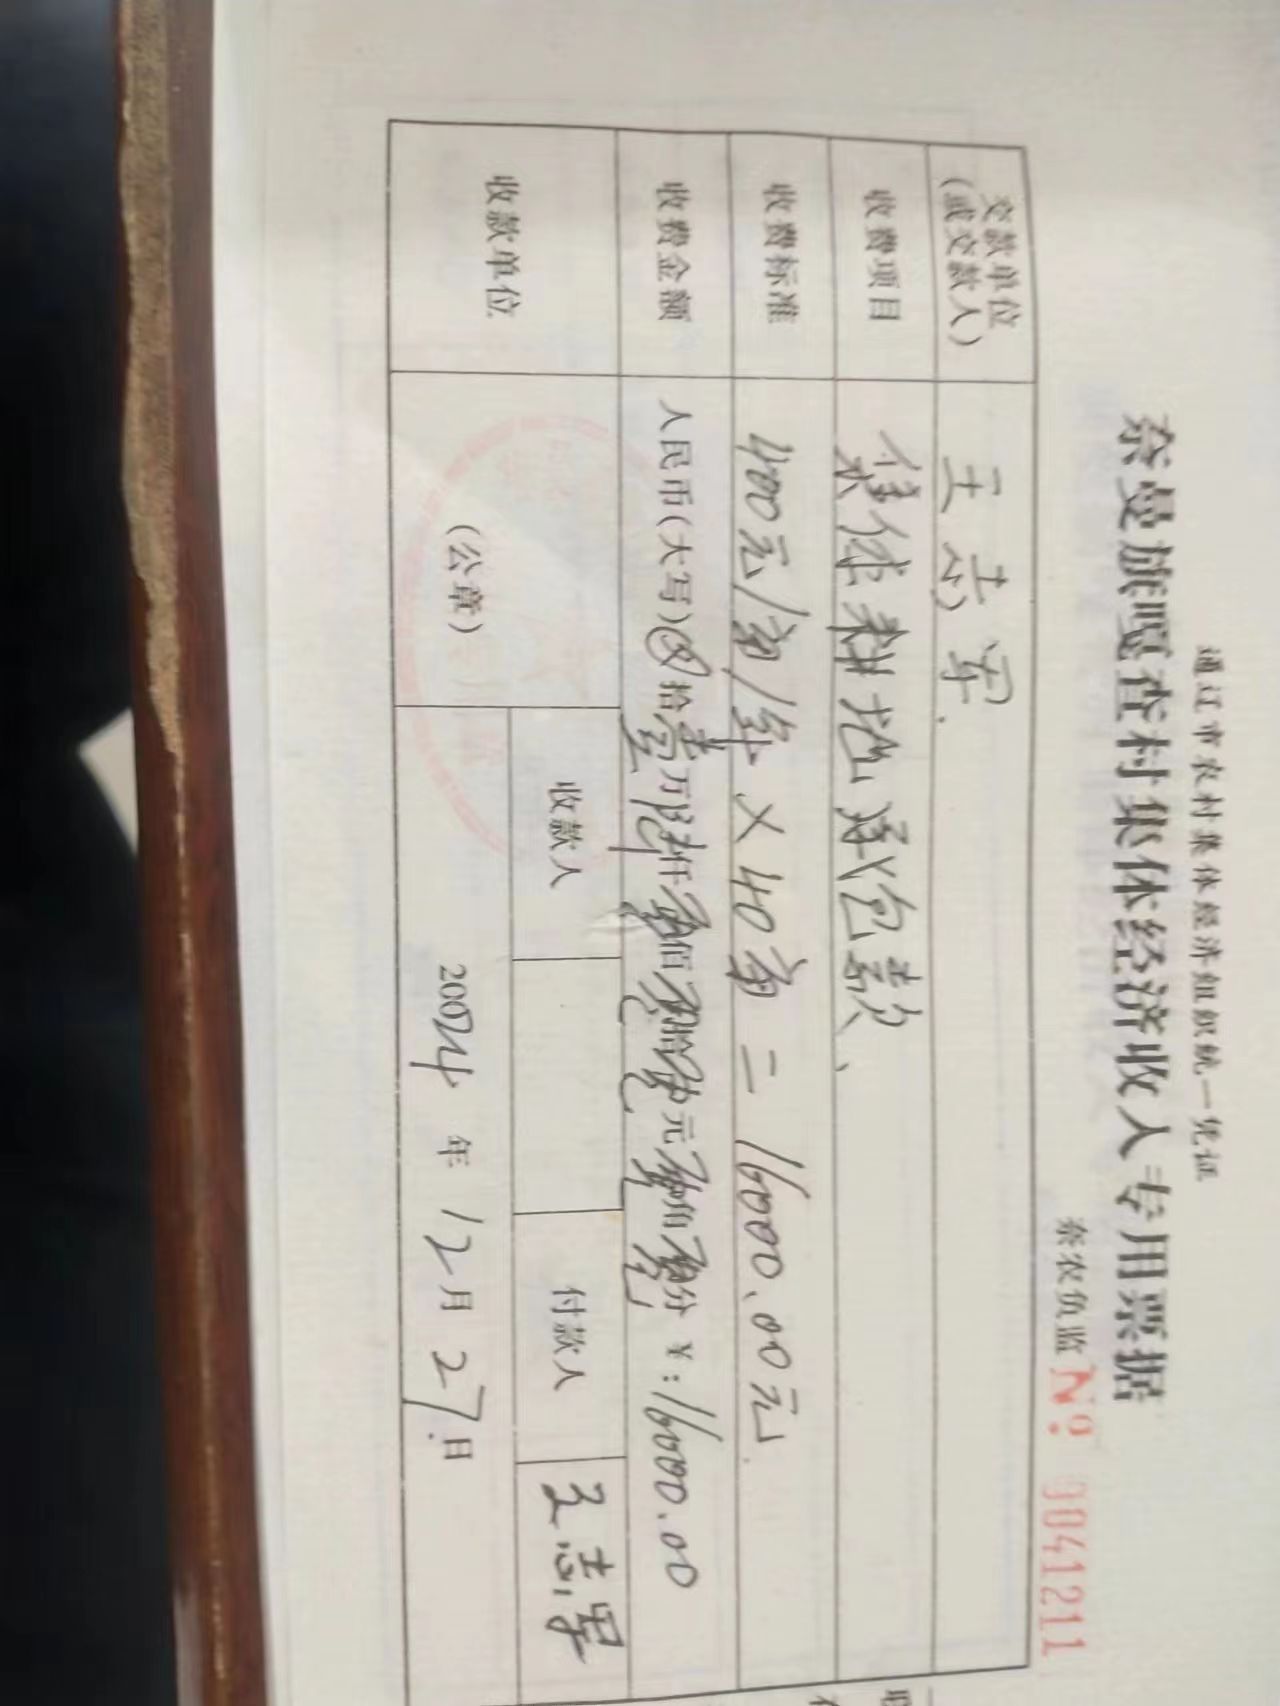 通辽市农村集体经济组织统一凭证
奈曼旗嘎查村集体经济收入专用票据
奈农负监 № 0041211
交款单位(或交款人) 王志军
收费项目 集体耕地承包款
收费标准 400元/亩/年×40亩=16000.00元
收费金额 人民币(大写)⊗拾壹万陆仟零佰零拾零元零角零分 ¥:16000.00
收款单位 (公章) 收款人 付款人 王志军
2024年12月27日